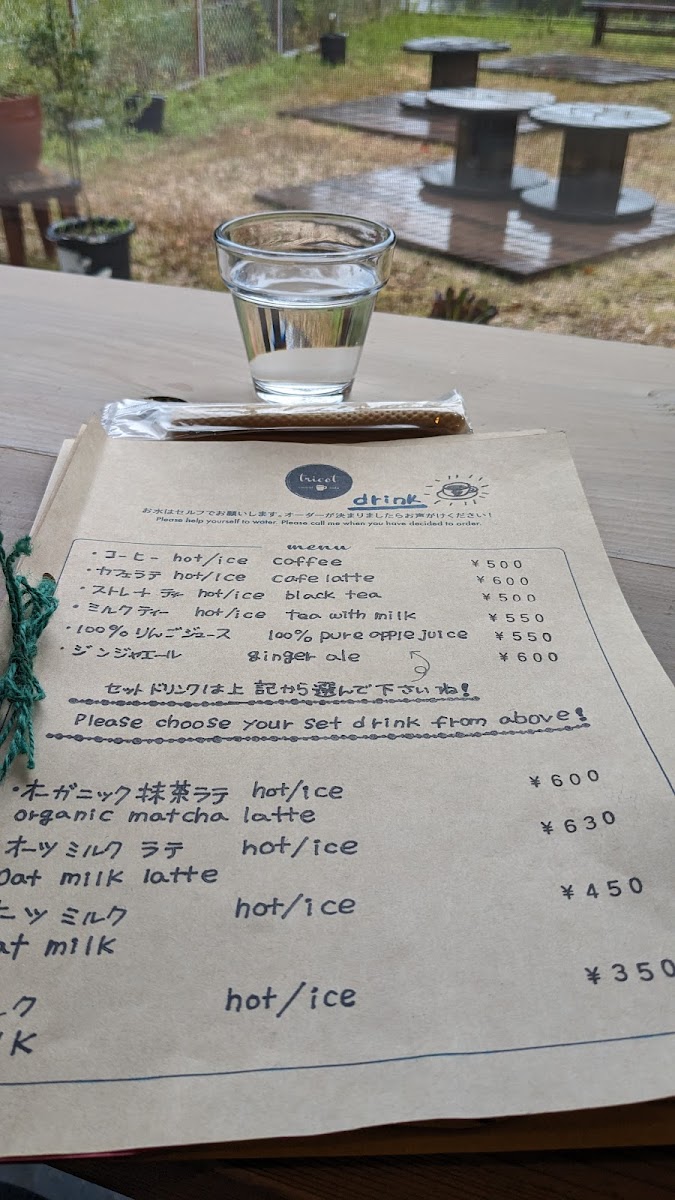 tricot
drink
お水はセルフでお願いします。オーダーが決まりましたらお声がけください！
Please help yourself to water. Please call me when you have decided to order.
menu
・コーヒー hot/ice coffee ¥500
・カフェラテ hot/ice cafe latte ¥600
・ストレートティー hot/ice black tea ¥500
・ミルクティー hot/ice tea with milk ¥550
・100%りんごジュース 100% pure apple juice ¥550
・ジンジャエール ginger ale ¥600
セットドリンクは上記から選んで下さいね！
Please choose your set drink from above!
・オーガニック抹茶ラテ hot/ice ¥600
organic matcha latte
オーツミルクラテ hot/ice ¥630
oat milk latte
ーツミルク hot/ice ¥450
at milk
ルク hot/ice ¥350
lk